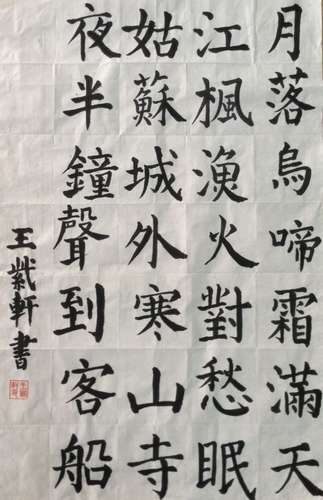 月落烏啼霜滿天
江楓漁火對愁眠
姑蘇城外寒山寺
夜半鐘聲到客船
王紫軒書